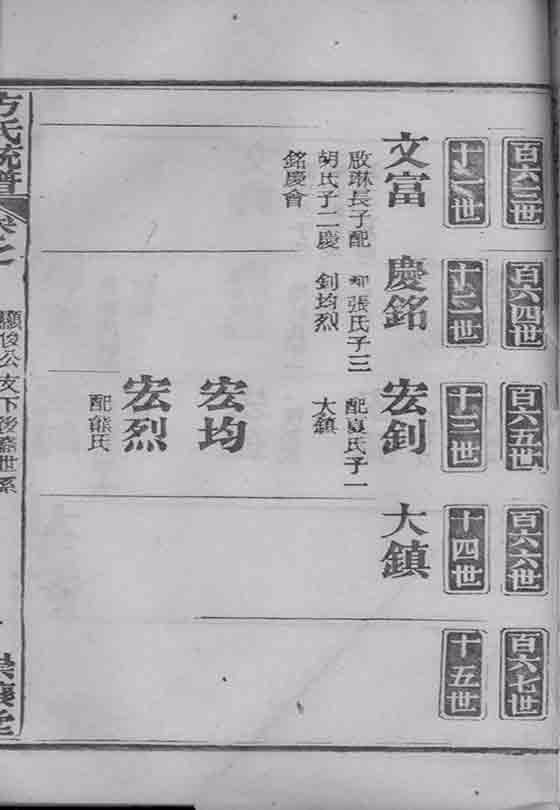 百六三世
百六四世
百六五世
百六六世
百六七世
十二世
十三世
十四世
十五世
文富
殷琳長子配
胡氏子二慶
銘慶會
慶銘
配張氏子三
釗均烈
宏釗
配夏氏子一
大鎮
大鎮
宏均
宏烈
配熊氏
方氏統譜
卷之
顯俊公支下後裔世系